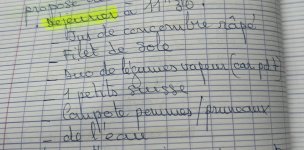 propose
Déjeuner à 11h30 :
- Jus de concombre râpé
- Filet de sole
- Duo de légumes vapeur (car pdt)
- 1 petits suisse
- Compote pommes / pruneaux
- de l'eau